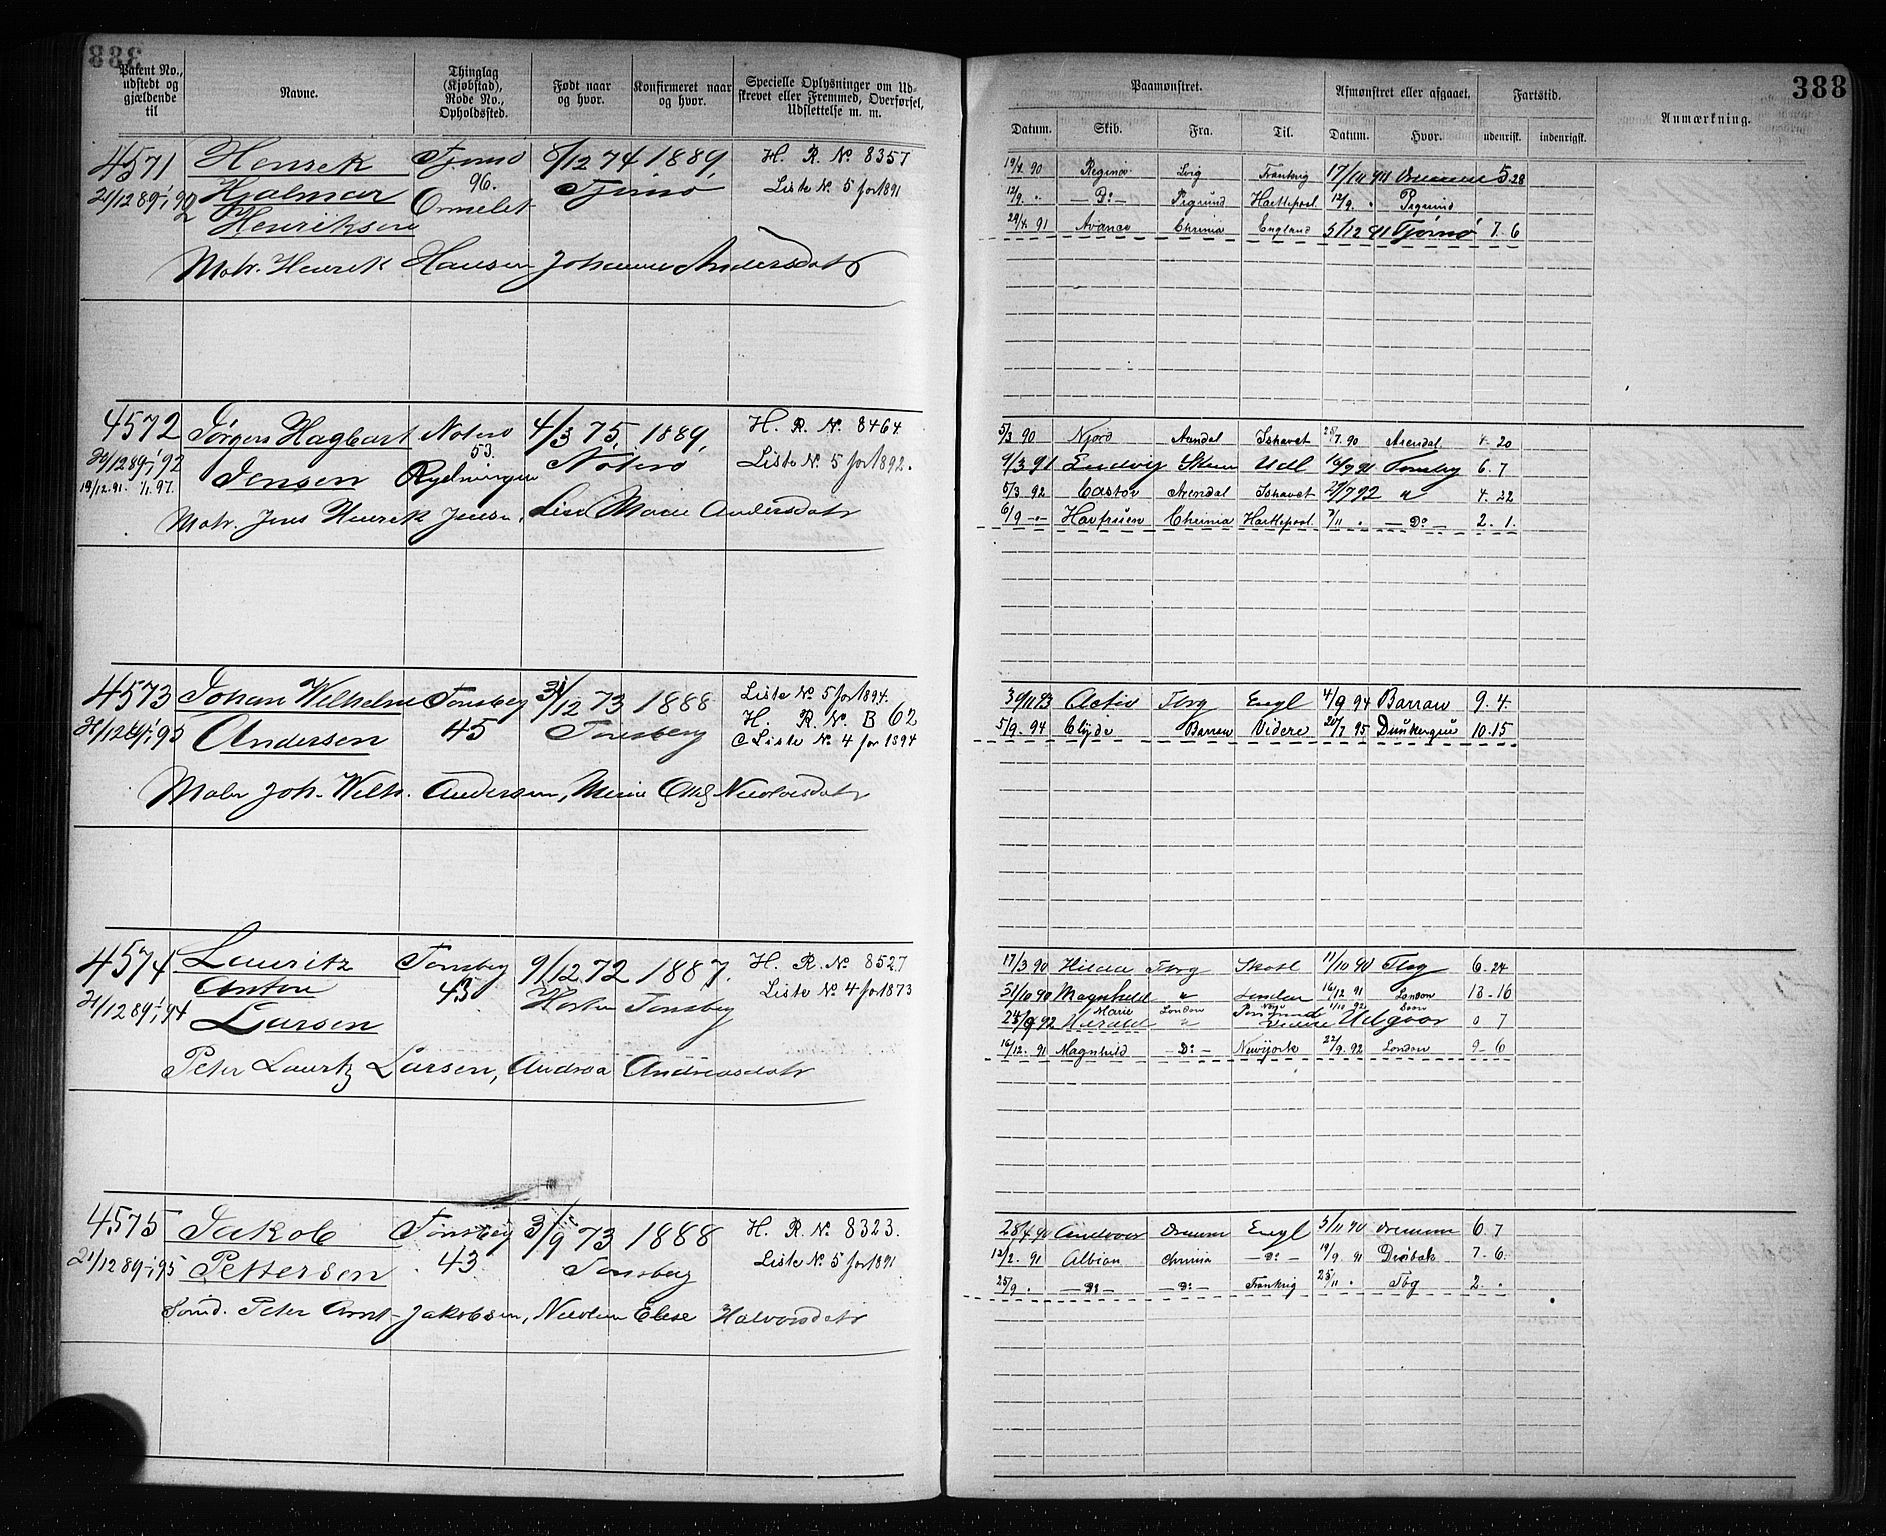 388
Patent No., udstedt og gjældende til
Navne.
Thinglag (Kjøbstad), Rode No., Opholdssted.
Født naar og hvor.
Konfirmeret naar og hvor.
Specielle Oplysninger om Udskrevet eller Fremmed, Overførsel, Udslettelse m. m.
Paamønstret.
Afmønstret eller afgaaet.
Fartstid.
Anmærkning.
388
Datum. Skib. Fra. Til. Datum. Hvor. udenrigst. indenrigst.
4571 Henrik Tjømø 8/12 74 1889, H. R. No 8357
21/12 89 Hjalmar 96. Tjømø Liste No 5 for 1891
Henriksen Ormelet
Matr. Henrik Hansen Johanne Andersdatr
19/4 90 Regina Lvig Frankrig 17/10 90 Drammen 5 28
12/9 " — Do — Prgrund Hartlepool 12/9 " Prgrund
29/4 91 Avance Chrinia England 5/12 91 Tjømø 7. 6
4572 Jørgen Hagbart Noterø 4/3 75, 1889, H. R. No 8464
21/12 89 1/1 92 Jensen 53. Noterø Liste No 5 for 1892.
19/12. 91. 1/1. 97.
Matr. Jens Henrik Jensen, Lise Marie Andersdatr
5/3 90 Njord Arendal Ishavet 25/7. 90 Arendal 4. 20
9/3 91 Ludvig Skien Udl 16/9 91 Tønsbg 6. 7
5/3 92 Castor Arendal Ishavet 27/7 92 " 4. 22
6/9 — " — Havfruen Chrinia Hartlepool. 7/11 " — Do — 2. 1.
4573 Johan Wilhelm Tønsberg 31/12 73 1888 Liste No 5 for 1894.
21/12 89 1/1 95 Andersen 45 Tønsberg H. R. No B 62
C Liste No 4 for 1894
Matr Joh. Wilh. Andersen, Marie Nicolaisdatr
30/11 93 Activ Tbrg Engl 4/9 94 Barrow 9. 4.
5/9. 94 Clyde Barrow Videre 20/7 95 Dunkerque 10. 15
4574 Lauritz Tønsberg 9/12 72 1887. H. R. No 8527
21/12 89 1/1 94 Anton 43 Horten Tønsberg Liste No 4 for 1873
Larsen
Peter Lauritz Larsen, Andrea Andreasdatr
17/3 90 Hilda Tbrg Skotl 11/10 90 Tbg 6. 24
31/10 90 Magnhild " London 16/12 91 London 13 - 16
24/9 92 Marie London Udgaar 0 7
16/12. 91 Magnhild — Do — Newyork 22/9. 92 London 9 - 6
4575 Jakob Tønsberg 3/9 73 1888 H. R. No 8323.
21/12 89 1/1 95 Pettersen 43. Tønsberg Liste No 5 for 1891
Sømd. Peter Arnt Jakobsen, Nicoline Elise Halvorsdatr
28/4 90 Andover Drammen Engl 5/11 90 Drammen 6. 7
12/2. 91 Albion Chrinia — Do — 19/9. 91 Drøbak 7. 6.
25/9 " — Do — — Do — Frankrig 25/11 " Tbg 2. "